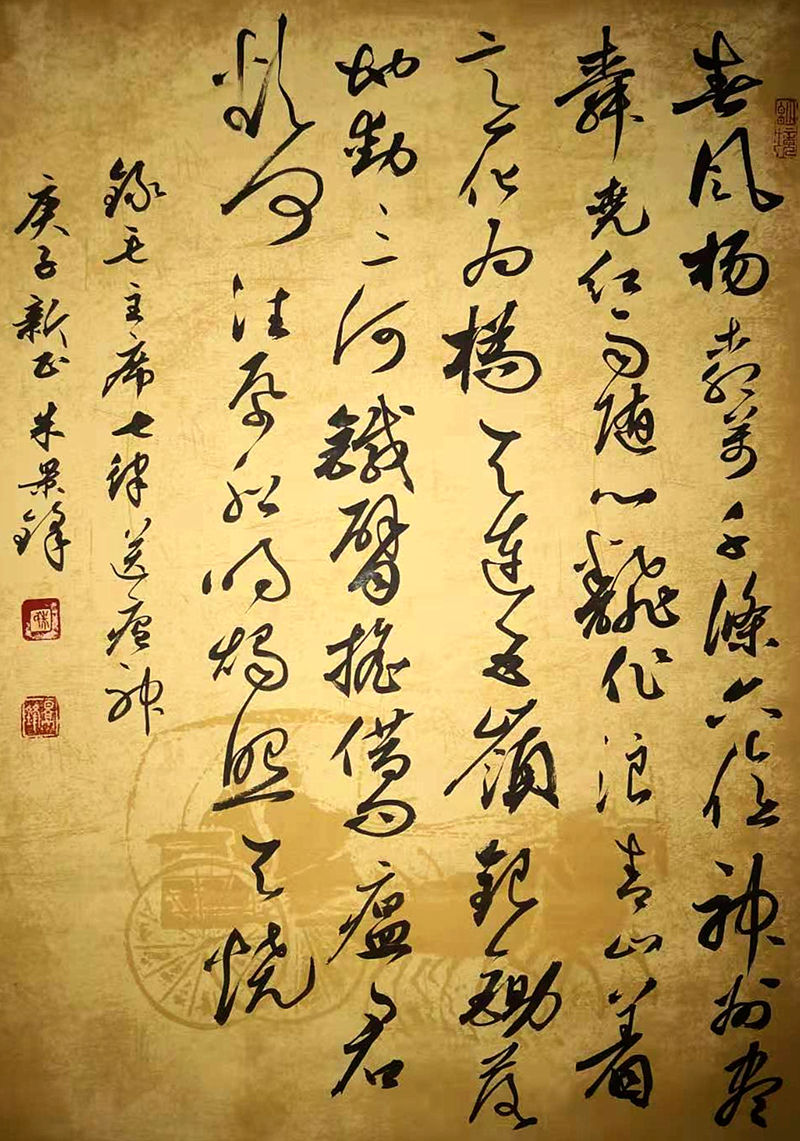 春风杨柳萬千條六億神州尽
舜尧红雨随心飜作浪青山着
意化为橋天连五嶺银鋤落
地動三河鐵臂搖借问瘟君
欲何往纸船明烛照天烧
錄毛主席七律送瘟神
庚子新正朱景锋